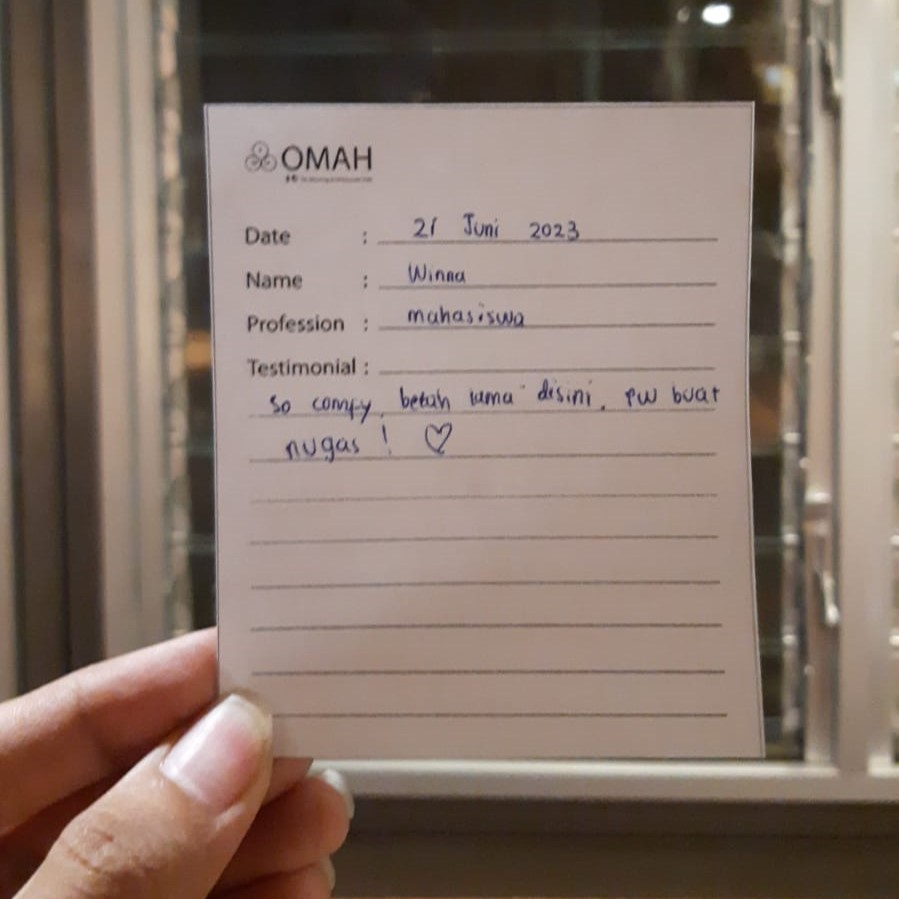 OMAH
Date : 21 Juni 2023
Name : Winna
Profession : mahasiswa
Testimonial :
so compy, betah lama" disini. PW buat
nugas ! ♡